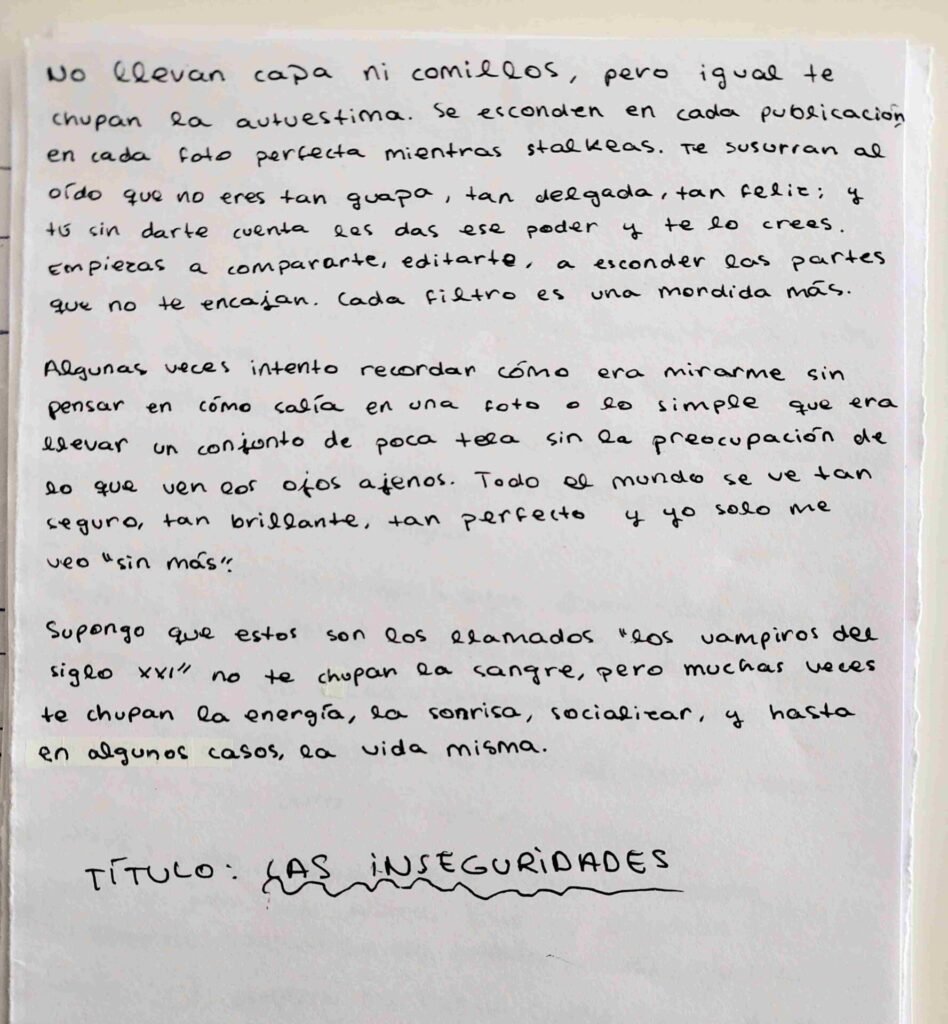 No llevan capa ni comillos, pero igual te
chupan la autuestima. Se esconden en cada publicación
en cada foto perfecta mientras stalkeas. Te susurran al
oído que no eres tan guapa, tan delgada, tan feliz; y
tú sin darte cuenta les das ese poder y te lo crees.
Empiezas a compararte, editarte, a esconder las partes
que no te encajan. Cada filtro es una mordida más.
Algunas veces intento recordar cómo era mirarme sin
pensar en cómo salía en una foto o lo simple que era
llevar un conjunto de poca tela sin la preocupación de
lo que ven los ojos ajenos. Todo el mundo se ve tan
seguro, tan brillante, tan perfecto y yo solo me
veo "sin más".
Supongo que estos son los llamados "los vampiros del
siglo XXI" no te chupan la sangre, pero muchas veces
te chupan la energía, la sonrisa, socializar, y hasta
en algunos casos, la vida misma.
TÍTULO: LAS INSEGURIDADES